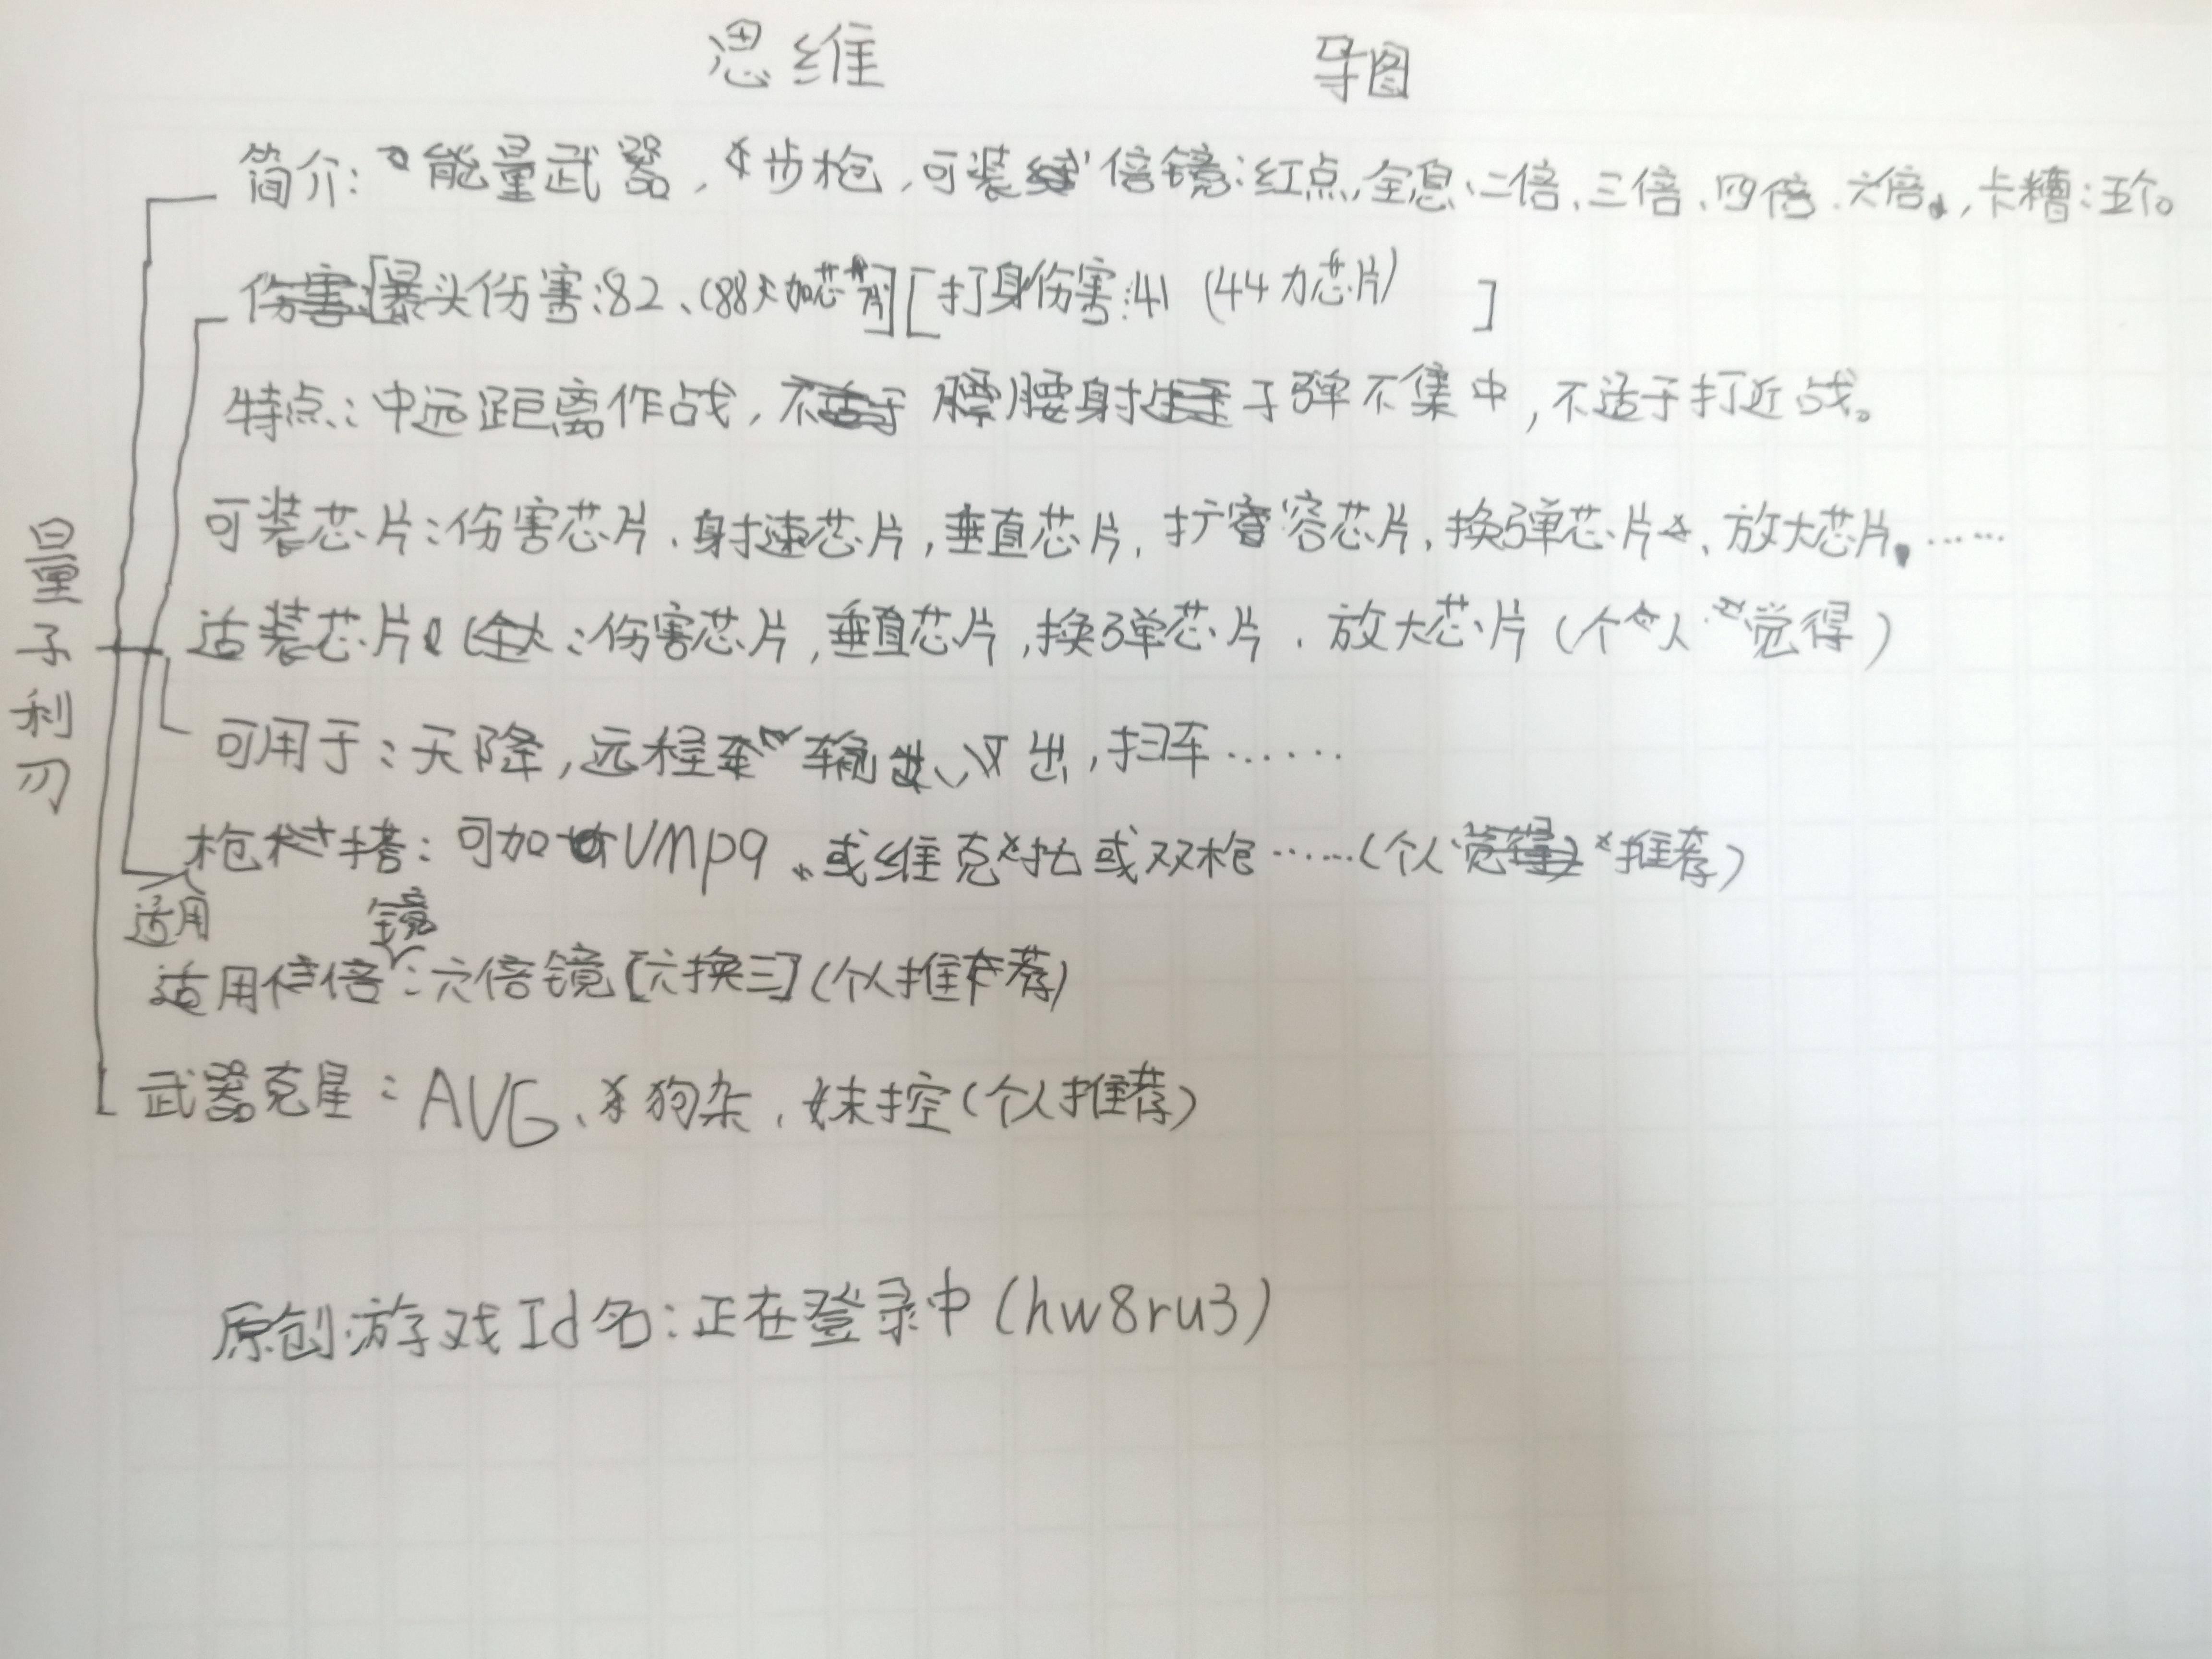 思维 导图
简介:能量武器,步枪,可装倍镜:红点,全息、二倍、三倍、四倍、六倍,卡糟:五个。
伤害:[暴头伤害:82、(88加芯片)][打身伤害:41 (44力芯片) ]
特点:中远距离作战,腰射子弹不集中,不适于打近战。
可装芯片:伤害芯片、射速芯片,垂直芯片,扩容芯片,换弹芯片、放大芯片,……
适装芯片:伤害芯片,垂直芯片,换弹芯片、放大芯片(个人觉得)
量子利刃
可用于:天降,远程输出,扫车……
枪搭:可加UMP9、或维克托或双枪……(个人推荐)
适用
适用倍镜:六倍镜[六换三](个人推荐)
武器克星:AUG、狗杂、妹控(个人推荐)
原创:游戏Id名:正在登录中(hw8ru3)